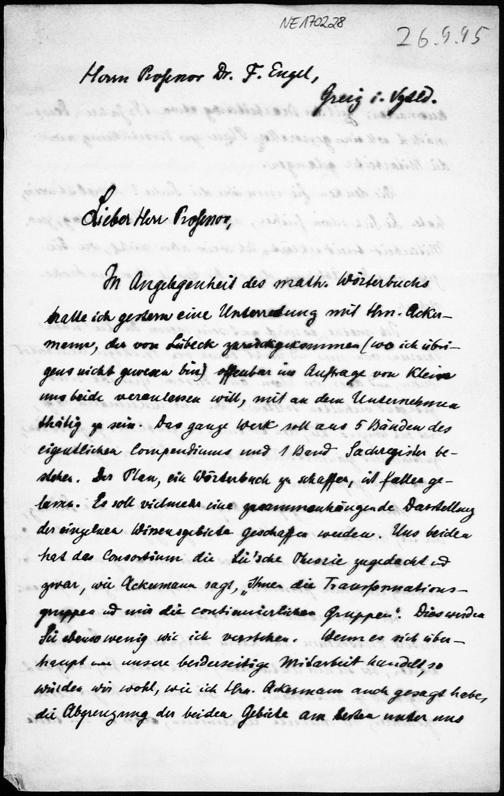 NE170228
26.9.95
Herrn Professor Dr. F. Engel,
Greiz i. Vgtld.
Lieber Herr Professor,
In Angelegenheit des math. Wörterbuchs
hatte ich gestern eine Unterredung mit Hrn. Acker-
mann, der von Lübeck zurückgekommen (wo ich übri-
gens nicht gewesen bin) offenbar im Auftrage von Klein
uns beide veranlassen will, mit an dem Unternehmen
thätig zu sein. Das ganze Werk soll aus 5 Bänden des
eigentlichen Compendiums und 1 Band Sachregister be-
stehen. Der Plan, ein Wörterbuch zu schaffen, ist fallen ge-
lassen. Es soll vielmehr eine zusammenhängende Darstellung
der einzelnen Wissensgebiete geschaffen werden. Uns beiden
hat das Consortium die Lie'sche Theorie zugedacht und
zwar, wie Ackermann sagt, "Ihnen die Transformations-
gruppen und mir die continuierlichen Gruppen". Dies werden
Sie ebenso wenig wie ich verstehen. Wenn es sich über-
haupt um unsere beiderseitige Mitarbeit handelt, so
würden wir wohl, wie ich Hrn. Ackermann auch gesagt habe,
die Abgrenzung der beiden Gebiete am besten unter uns